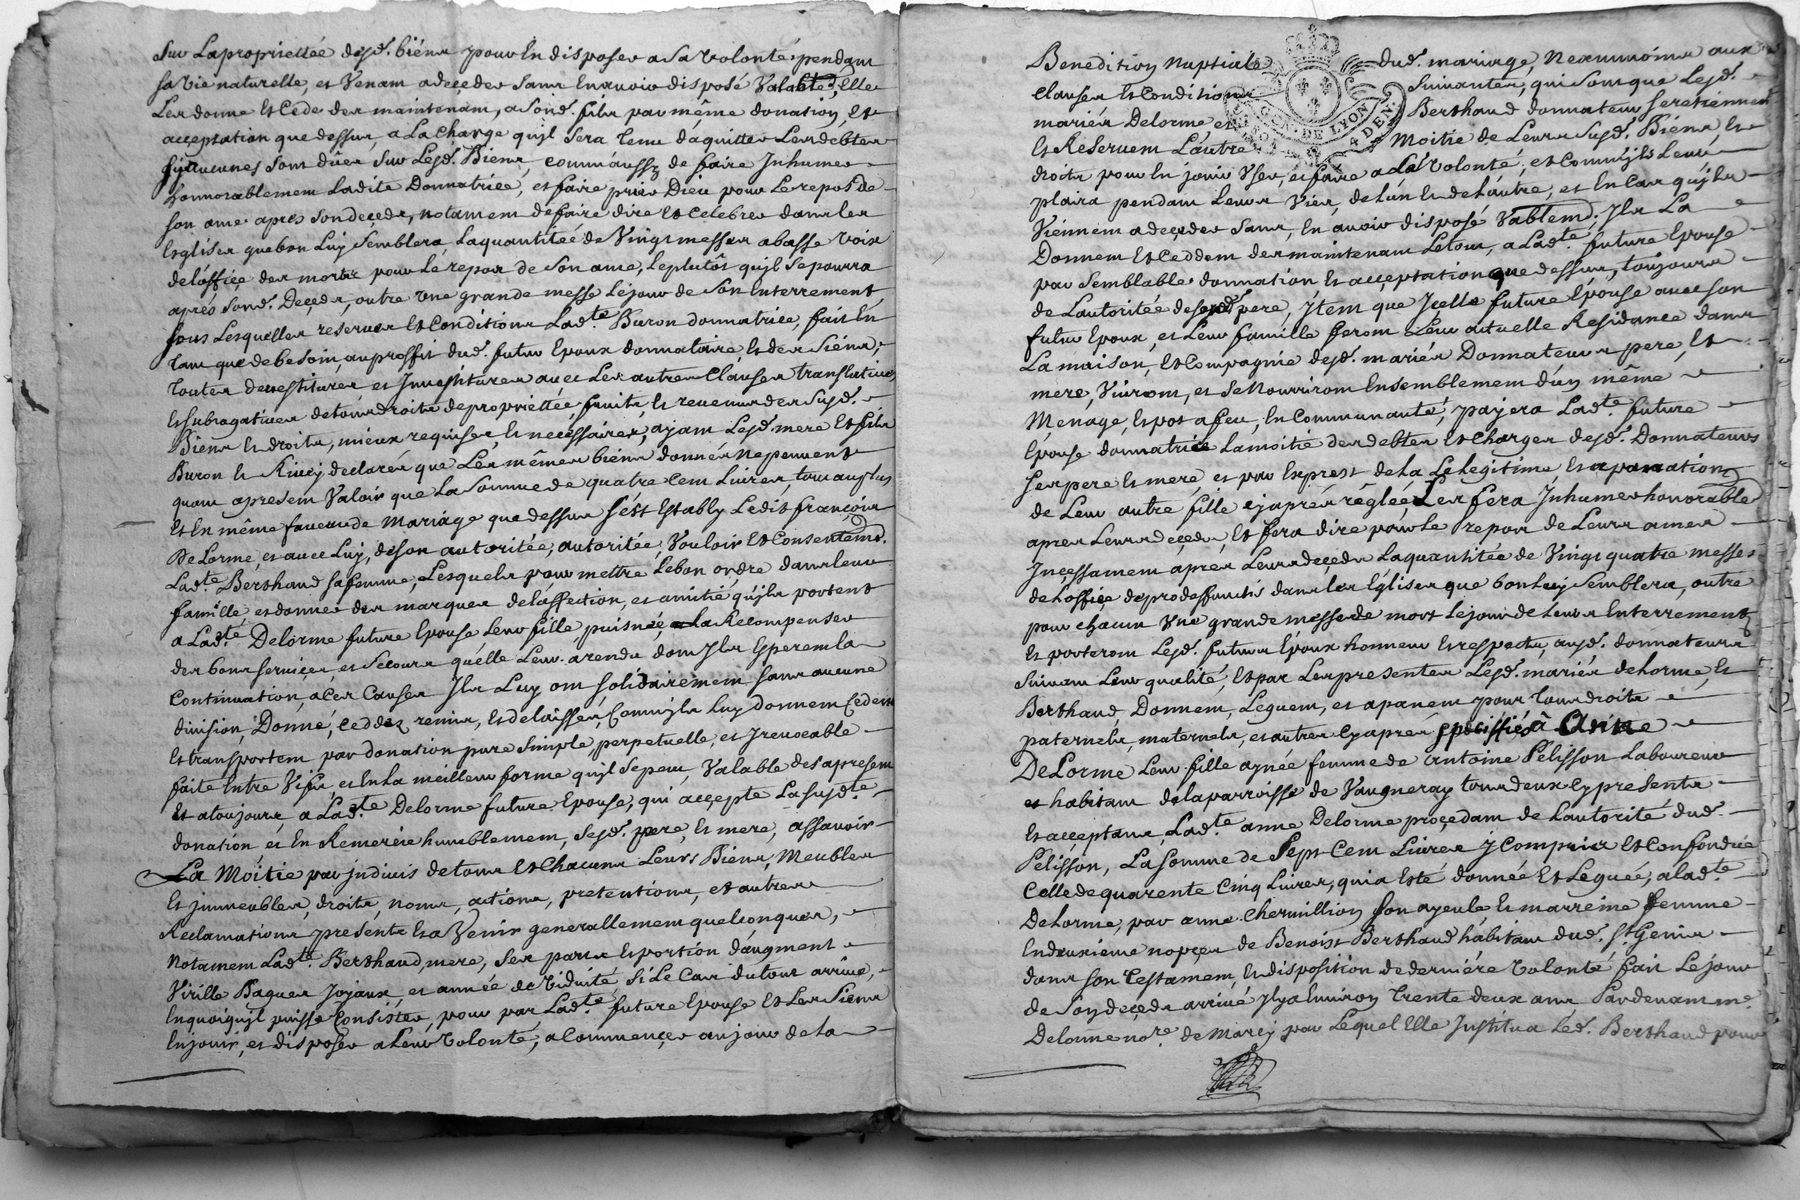 sur La proprietée desd. biéns pour En disposer a Sa Volonté pendant
sa Vie naturelle, et Venant a deceder Sans En avoir disposé Valable, Elle
Les donne Et Cede des maintenant, a Sond. fils par même donation, Et
acceptation que dessus, a La Charge quil Sera tenu d'aquitter Les debtes
Syaucunes Sont dües Sur Lesd. Biens, comm'aussy de faire Inhumer
honnorablement Ladite Donnatrice, et faire prier Dieu pour Le repos de
son ame apres Son deceds, notament de faire dire Et Celebrer dans les
Esglises que bon Luy Semblera, La quantitée de Vingt messes a basse Voix
de L'office des morts pour Le repos de Son ame, Le plutôt quil Se pourra
aprés Sond. Deçeds, outre Une grande messe Le jour de Son Enterrement,
sous Lesquelles reserves Et Conditions Lad.te Buron donnatrice, fait En
tant que de besoin, au proffit dud. futur Epoux donnataire, Et des Siéns,
toutes devestitures et Jnvestitures avec Les autres Clauses translatives
Et Subrogatives de tous droits de proprietée, fruits, Et revenus des Susd.
Biens Et droits, mieux requises Et neçéssaires, ayant Lesd. mere Et fils
Buron Et Rivey declarés que Les mêmes biéns donnés Ne peuvent
quant apresent Valoir que La Somme de quatre Cent Livres tout au plus
Et En même faveur de mariage que dessus s'ést Establÿ Ledit françois
De Lorme, et avec Luy, de Son autoritée, autoritée Vouloir Et Consentemt.
Lad.te Berthaud sa femme, Lesquels pour mettre Le bon ordre dans Leur
famille, et donner des marques de L'affection, et amitié qu'jls portent
a Lad.te Delorme future Epouse Leur fille, puisnée, La Recompenser
des bons Services, et Secours qu'elle Leur a rendu dont Jls Esperent La
Continuation, a Ces Causes Jls Luy ont solidairement sans aucune
division, Donné, Ceddez remis, Et delaissés, Comm'jls Luy donnent Cedent
Et transportent par donation pure Simple, perpetuelle, et Jrrevocable
faite Entre Vifs, et En La meilleur forme qu'jl Se peut, Valable des apresent
Et a toujours, a Lad.te Delorme future Epouse, qui acçepte La Susd.te
donation, et En Remercie humblement, Sesd. pere, Et mere, assavoir
La Moitié par jndivis de tous Et Chacuns Leurs Biens, Meubles
Et jmmeubles, droits, noms, actions, pretentions, et autres
Reclamations présents Et a Venir generallement quelconques,
Notament Lad.te Berthaud, mere, Ses part Et portion d'augment
Virille Bagues Joyaux, et année de Viduité Si Le Cas du tout arrive,
En quoi qu'jl puisse Consister, pour par Lad.te future Epouse Et Les Siens
En jouir, et disposer a Leur Volonté, a Commencer au jour de La
Benediction Nuptiale dud. mariage, Neanmoins aux
Clauses Et Conditions Suivantes, qui Sont que Lesd.
mariés Delorme et Berthaud donnateurs se retiennent
Et Reservent L'autre Moitié de Leurs Susd. Biéns, Et
droits pour En jouir User, et faire a La Volonté, et Comm'jls Leur
plaira pendant Leurs Vies, de L'un Et de L'autre, et En Cas qu'jls
Viennent a deçeder Sans, En avoir disposé Vablemt. Jls La
Donnent Et Ceddent des maintenant Le tout, a Lad.te future Epouse
par Semblable donnation Et acçeptation que dessus, toujours
de L'autoritée de Sond. pere, Jtem que Jcelle future Epouse avec Son
futur Epoux, et Leur famille feront Leur actuelle Residance dans
La maison, Et Compagnie desd. mariés Donnateurs pere, Et
mere, Vivront, et Se Nourriront Ensemblement d'un même
Menage, Et pot a feu, En Communauté, payera Lad.te future
Epouse donnatrice La moitié des debtes Et Charges desd. Donnateurs
ses pere Et mere, et par Exprest de La Le Legitime, Et apanations
de Leur autre fille cj aprés réglée Les fera Jnhumer honorables
apres Leurs deçeds, Et fera dire pour Le repos de Leurs ames
Jnçessament apres Leurs deçeds La quantitée de Vingt quatre messes
de L'offiçe de pro deffunctis dans Les Eglises que bon Luy Semblera, outre
pour chacun Une grande messe de mort Le jour de Leurs Enterrements
Et porteront Lesd. futurs Epoux honneur Et respects, ausd. donnateurs
Suivant Leur qualité, Et par Les presentes Lesd. mariés delorme, Et
Berthaud, Donnent, Leguent, et apanent pour tous droits
paternels, maternels, et autres Cy aprés Specifiés â Anne
De Lorme Leur fille aynée femme de Antoine Pelisson Laboureur
et habitant de La parroisse de Vaugneray tous deux Cy presents
Et acçeptans, Lad.te anne Delorme proçedant de L'autorité dud.
Pelisson, La Somme de Sept Cent Livres y Compris Et Confondüe
Celle de quarente Cinq Livres, qui a Esté donnée Et Leguée, a Lad.te
Delorme, par anne Chermillion Son ayeule Et marreine femme
En deuxieme nopçes de Benoist Berthaud habitant dud. St. Genis
dans Son Testament, Et disposition de derniére Volonté, fait Le jour
de Son deçeds arrivé Jl y a Environ trente deux ans Pardevant me.
Delorme no.re de Marcy par Lequel Elle Jnstitua Led. Berthaud pour
GEN. DE LYON
4 DEN